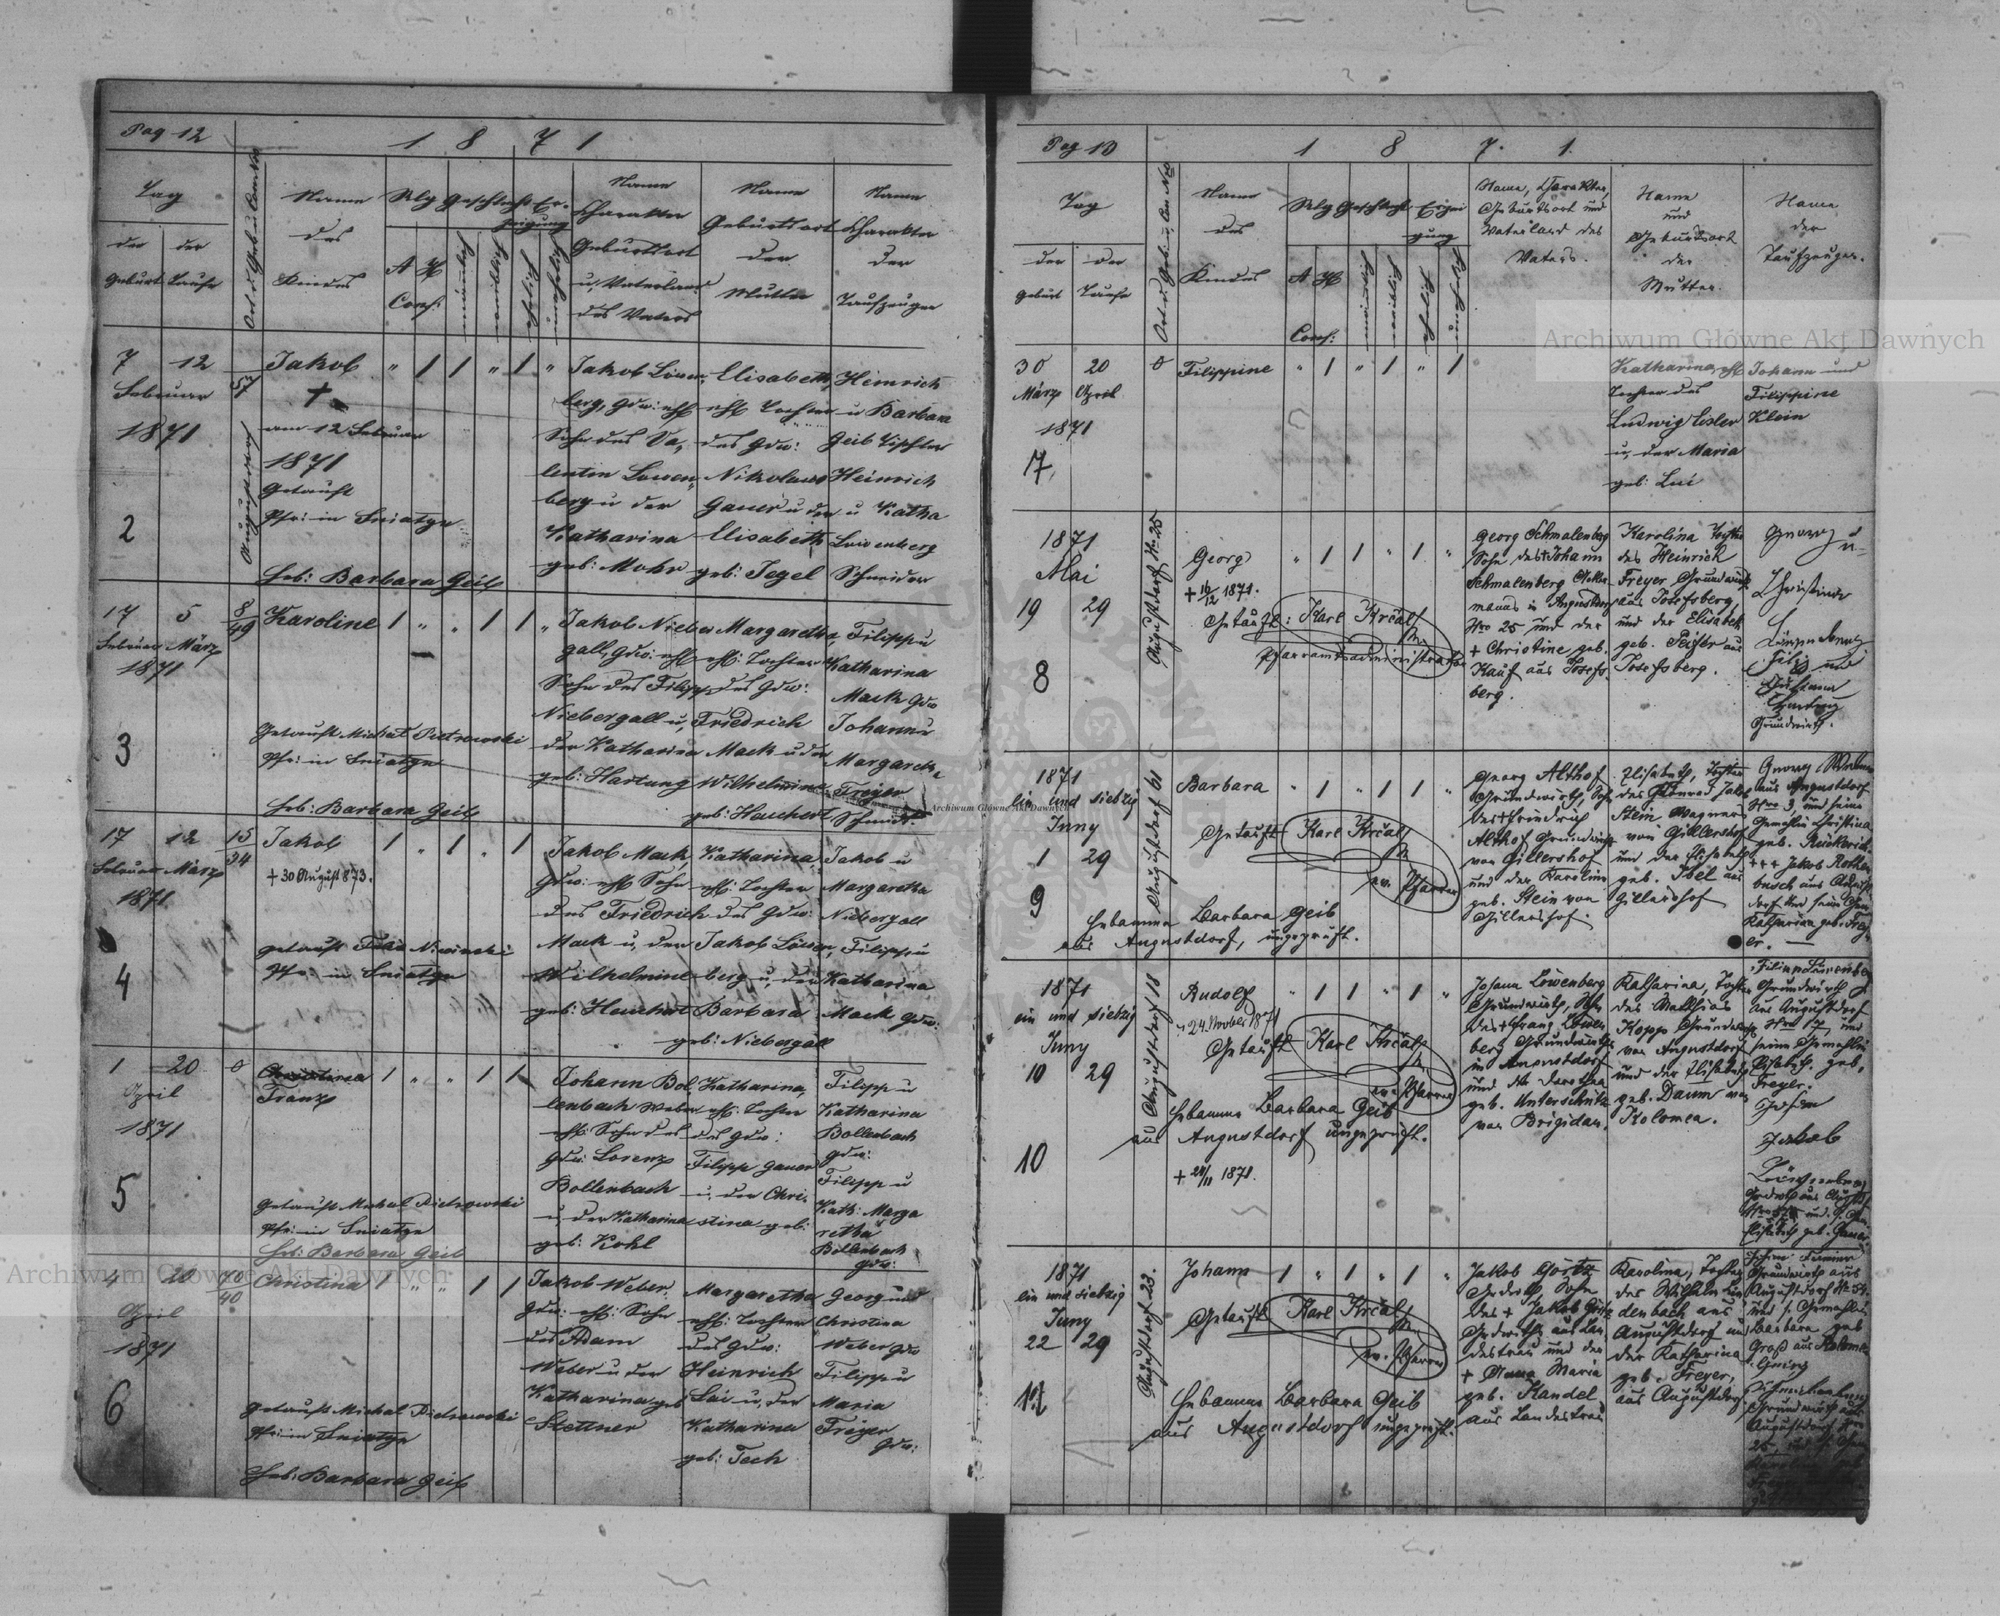 Pag 12
1 8 7 1
Tag
der Geburt
der Taufe
Name
des
Kindes
Relig
Geschlecht
Er-
zeugung
A H
Conf:
männlich
weiblich
ehelich
unehelich
Name
Charakter
Geburtsort
u. Vaterland
des Vaters
Name
Geburtsort
der
Mutter
Name
Charakter
der
Taufzeugen
7 12
Februar
1871
57
Augustdorf
2
Jakob
am 12 Februar
1871
Getauft
Pfr: in Sniatyn
Heb: Barbara Geib
Jakob Löwen-
berg, Gdw: ehl
Sohn des Va-
lentin Löwen-
berg u der
Katharina
geb: Mohr
Elisabeth
ehl Tochter
des Gdw:
Nikolaus
Gauer u der
Elisabeth
geb: Jegel
Heinrich
u Barbara
Geib Tischler
Heinrich
u Katha
Löwenberg
Schneider
17 5
Februar März
1871
8
49
3
Karoline
Getauft Michał Pietrowski
Pfr: in Sniatyn
Heb: Barbara Geib
Jakob Nieber
gall, Gdw: ehl
Sohn des Filipp
Niebergall u,
der Katharina
geb: Hartung
Margaretha
ehl: Tochter
des Gdw:
Friedrich
Mack u der
Wilhelmine
geb: Hauchert
Filipp u
Katharina
Mack Gdw
Johann u
Margareth
Freyer
Schmidt
17 12
Februar März
1871
15
34
4
Jakob
+ 30 August 873.
getauft
Pfr: in Sniatyn
Jakob Mack
Gdw: ehl Sohn
des Friedrich
Mack u, der
Wilhelmine
geb: Hauchert
Katharina
ehl: Tochter
des Gdw:
Jakob Löwen-
berg u, der
Barbara
geb: Niebergall
Jakob u
Margaretha
Niebergall
Filipp u
Katharina
Mack Gdw:
1 20
April
1871
0
5
Christina
Franz
Getauft Michal Pietrowski
Pfr: in Sniatyn
Heb: Barbara Geib
Johann Bol-
lenbach Weber
ehl: Sohn des
Gdw: Lorenz
Bollenbach
u der Katharina
geb: Kohl
Katharina,
ehl: Tochter
des Gdw:
Filipp Gauer
u, der Chri-
stina geb:
Filipp u
Katharina
Bollenbach
Gdw:
Filipp u
Kath: Marga
retha
Bollenbach
Gdw:
4 20
April
1871
70
40
6
Christina
Getauft Michal Pietrowski
Pfr: in Sniatyn
Heb: Barbara Geib
Jakob Weber
Gdw: ehl: Sohn
des Adam
Weber u der
Katharina geb
Stettner
Margaretha
ehl: Tochter
des Gdw:
Heinrich
Lai u, der
Katharina
geb: Tech
Georg und
Christina
Weber Gdw
Filipp u
Maria
Freyer
Gdw:
Pag 13
1 8 7. 1.
Tag
der Geburt
der Taufe
Name
des
Kindes
Relig
Geschlecht
Erzeu
gung
A H
Conf:
männlich
weiblich
ehelich
unehelich
Name, Charakter,
Geburtsort und
Vaterland des
Vaters.
Name
und
Geburtsort
der
Mutter.
Name
der
Taufzeugen.
30 20
März April
1871
7
0
Filippine
Katharina, ehl
Tochter des
Ludwig Issler
u, der Maria
geb: Lui
Johann und
Filippine
Klein
1871
Mai
19 29
8
Augustdorf No 25
Georg
+ 16/12 1871.
Getauft: Karl Krčal
Pfarramtsadministrator
Georg Schmalenberg
Sohn des + Johann
Schmalenberg Acker-
manns in Augustdorf
Nro 25 und der
+ Christine geb.
Kauf aus Josefs-
berg.
Karolina Tochter
des Heinrich
Freyer Grundwirth
aus Josefsberg
und der Elisabeth
geb. Peifer aus
Josefsberg.
Georg u.
Christina
Grundwirth.
1871
ein und siebzig
Juny
1 29
9
Augustdorf 61
Barbara
Getauft Karl Krčal
ev. Pfarrer
Hebamme Barbara Geib
aus Augustdorf, ungeprüft.
Georg Althof
Grundwirth, Sohn
des + Friedrich
Althof Grundwirth
von Gillershof
und der Karolina
geb. Stein von
Gillershof.
Elisabeth, Tochter
des Konrad Jakob
Stein Wagners
von Gillershof
und der Elisabeth
geb. Ebel aus
Gillershof
Georg Weber
aus Augustdorf
Nro 9 und seine
Gemahlin Christina
geb. Rückerich
+++ Jakob Rothen-
busch aus August-
dorf und seine Gem.
Katharina geb. Frey-
er.
1871
ein und siebzig
Juny
10 29
10
Augustdorf 18
Rudolf
+ 24. November 1871
Getauft Karl Krčal
ev. Pfarrer
Hebamme Barbara Geib
aus Augustdorf ungeprüft.
+ 24/11 1871.
Johann Löwenberg
Grundwirth, Sohn
des + Franz Löwen
berg Grundwirth
in Augustdorf
und der Dorothea
geb. Unterschütz
von Brigidau.
Katharina, Tochter
des Mathias
Kopp Grundwirth
von Augustdorf
und der Elisabeth
geb. Daum von
Kolomea.
Filipp Löwenberg
Grundwirth
aus Augustdorf
Nro 17 und
seine Gemahlin
Elisabeth. geb.
Freyer.
Jakob
Löwenberg
1871
ein und siebzig
Juny
22 29
11
Augustdorf 23.
Johann
Getauft Karl Krčal
ev. Pfarrer
Hebamme Barbara Geib
aus Augustdorf ungeprüft.
Jakob Görtz
Grdwirth, Sohn
des + Jakob Görtz
Grdwirths aus Lan
destreu und der
+ Anna Maria
geb. Kandel
aus Landestreu
Karolina, Tochter
des Wilhelm Lin
denbach aus
Augustdorf und
der Katharina
geb. Freyer,
aus Augustdorf
Grundwirth aus
Augustdorf No 54.
und s. Gemahlin
Barbara geb
Groß aus Kolomea
Georg
Grundwirth aus
Augustdorf Nro
25
Archiwum Główne Akt Dawnych
Archiwum Główne Akt Dawnych
Archiwum Główne Akt Dawnych